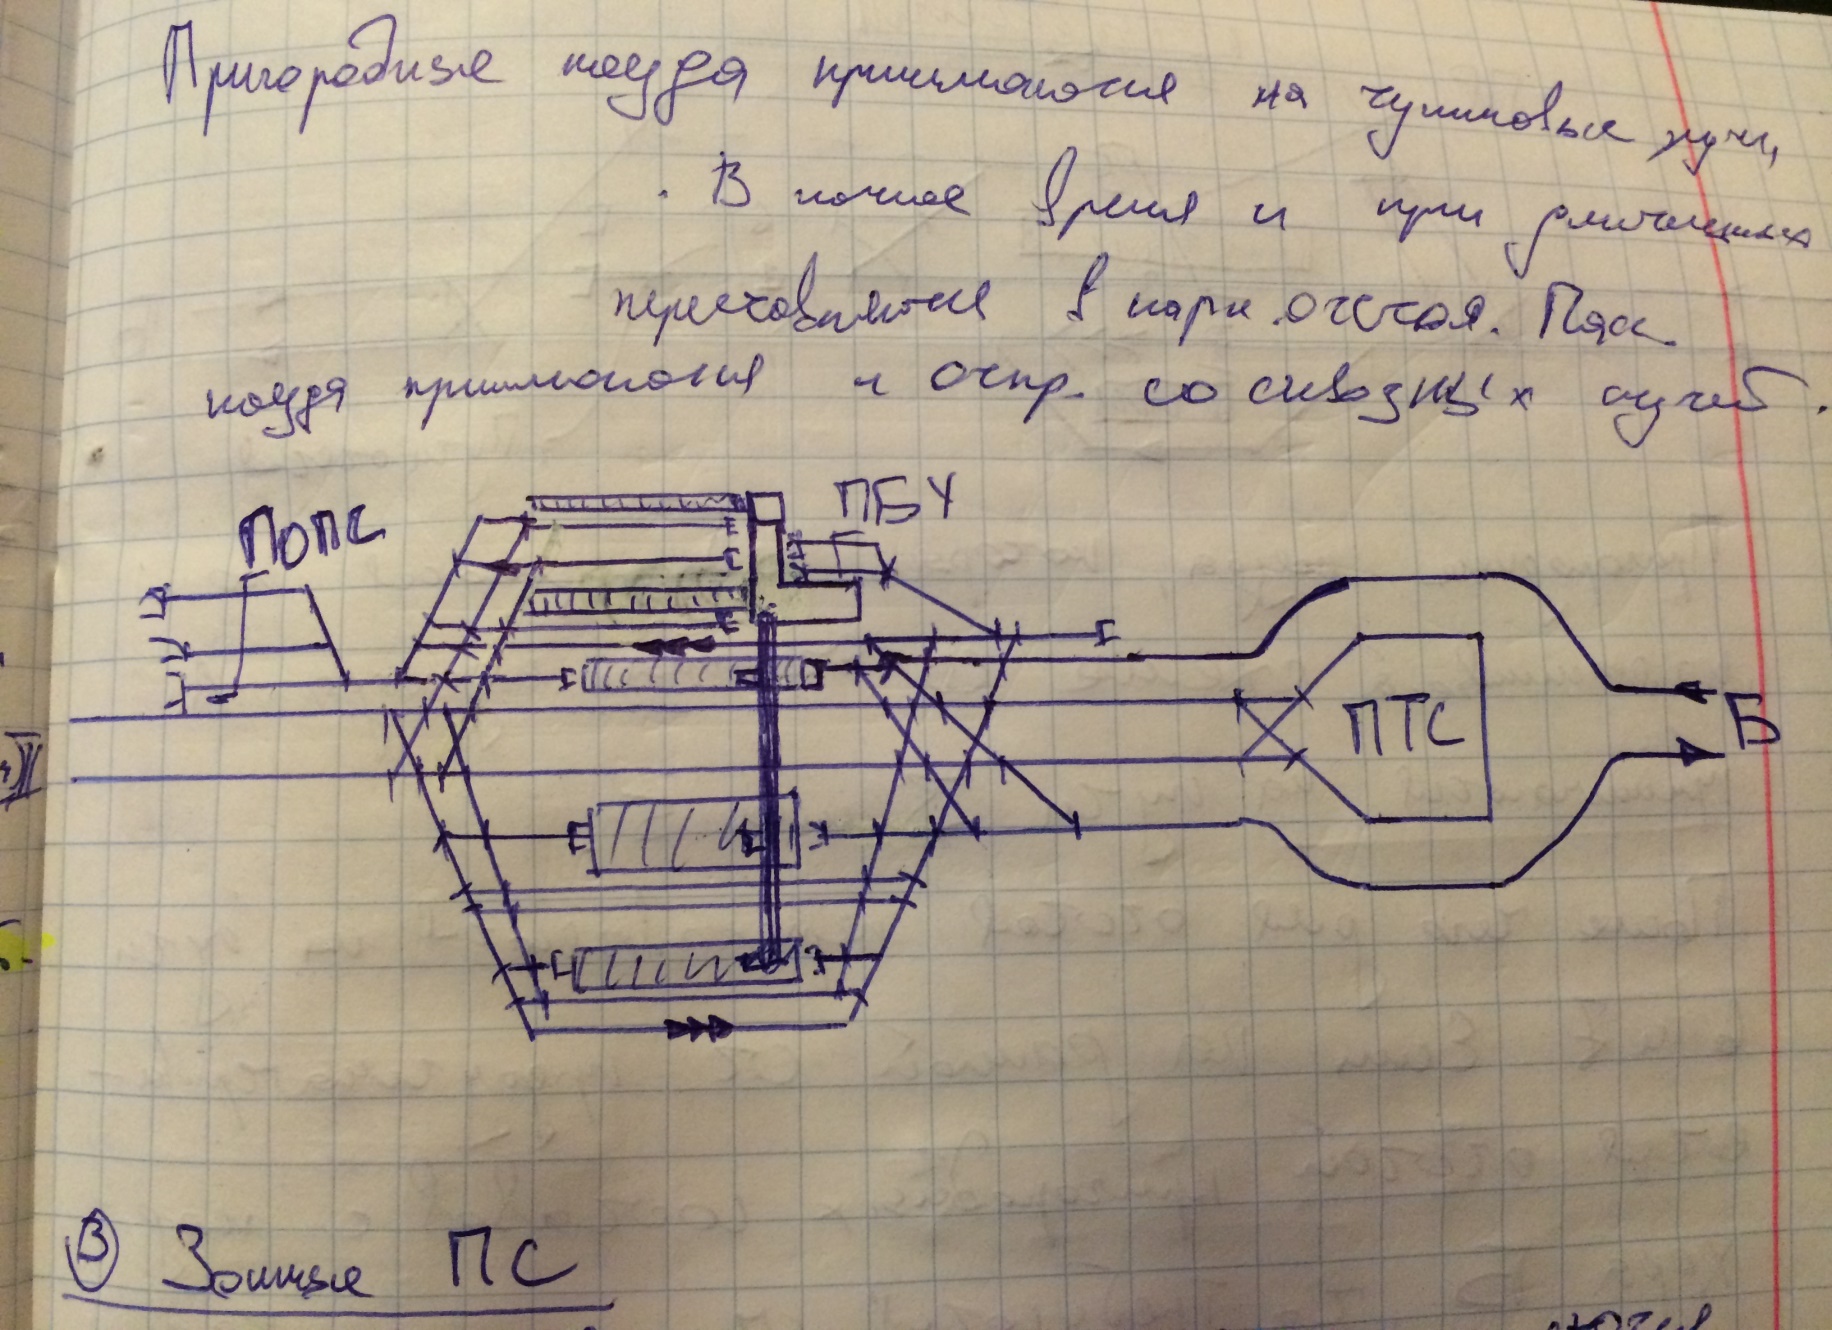 Пригородные поезда принимаются на тупиковые пути,
. В ночное время и при
переставляются в парк отстоя. Пасс.
поезда принимаются и отпр. со сквозных путей.
ПБУ
ПОПС
ПТС
Б
II
В Зонные ПС